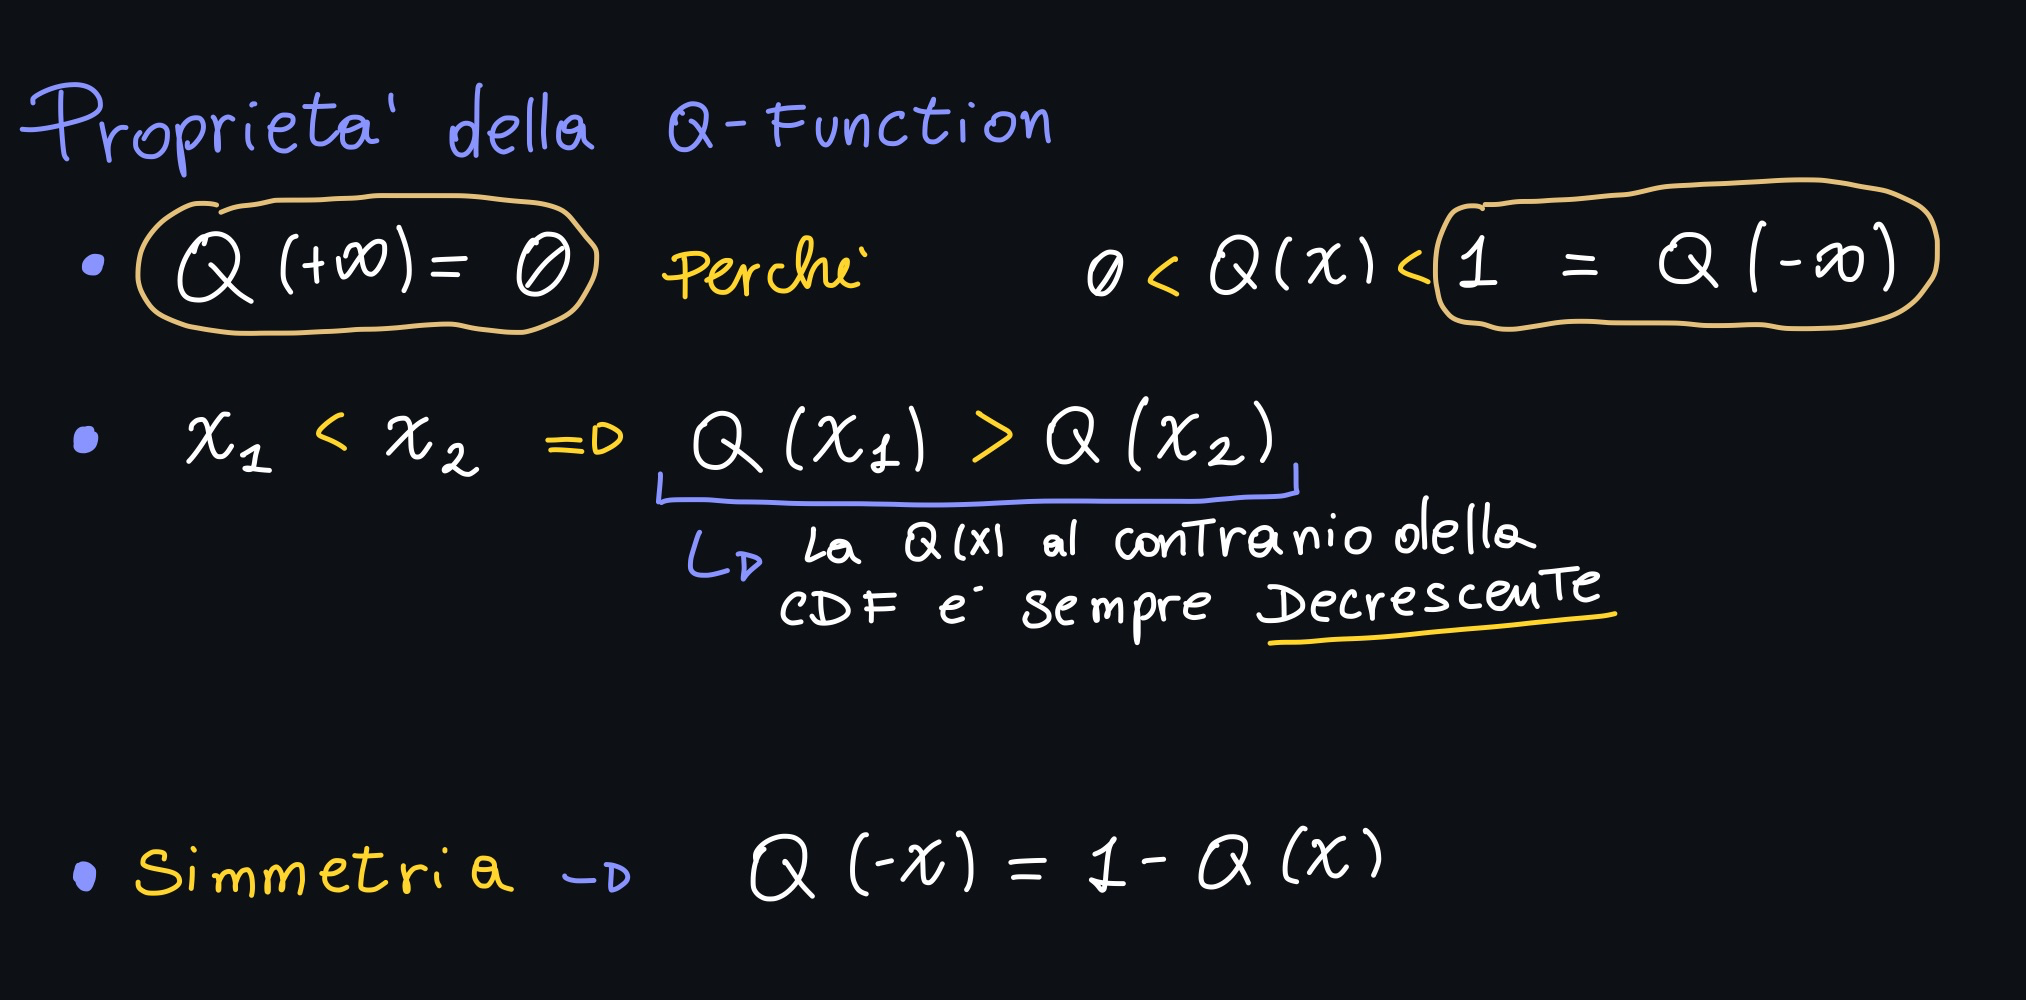 Proprieta' della Q-Function
• Q(+∞) = 0 Perche' 0 < Q(x) < 1 = Q(-∞)
• x₁ < x₂ => Q(x₁) > Q(x₂)
La Q(x) al contrario della
CDF e' sempre Decrescente
• Simmetria -> Q(-x) = 1 - Q(x)